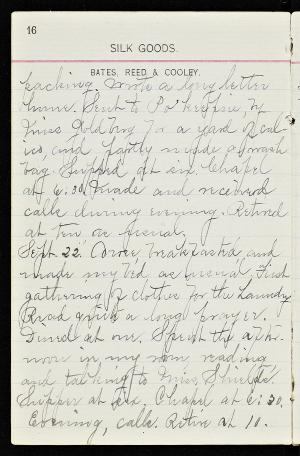 16
SILK GOODS.
BATES, REED & COOLEY.
packing. Wrote a long letter
home. Sent to Po'keepsie, by
Miss Goldberg for a yard of cal-
ico, and partly made a wash
bag. Supped at six. Chapel
at 6:30. Made and received
calls during evening. Retired
at ten as usual.
Sept. 22. Arose, breakfasted, and
made my bed as usual. First
gathering of clothes for the Laundry.
Read a long prayer.
Dined at one. Spent the after-
noon in my room, reading
and talking to Miss Shields.
Supper at six. Chapel at 6:30.
Evening, calls. Retire at 10.